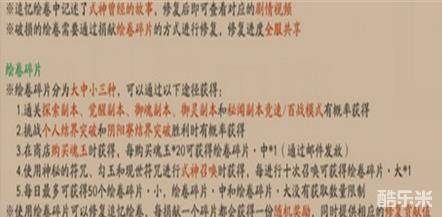 ※追忆绘卷中记述了式神曾经的故事，修复后即可查看对应的剧情视频
※破损的绘卷需要通过捐献绘卷碎片的方式进行修复，修复进度全服共享
绘卷碎片
※绘卷碎片分为大中小三种，可以通过以下途径获得：
1.通关探索副本、觉醒副本、御魂副本、御灵副本和秘闻副本竞速/首战模式有概率获得
2.挑战个人结界突破和阴阳寮结界突破胜利时有概率获得
3.在商店购买魂玉时获得，每购买魂玉*20可获得绘卷碎片·中*1（通过邮件发放）
4.使用神秘的符咒、勾玉和现世符咒进行式神召唤时获得，每进行十次召唤可获得绘卷碎片·大*1
5.每日最多可获得50个绘卷碎片·小，绘卷碎片·中和绘卷碎片·大没有获取数量限制
※使用绘卷碎片可以修复追忆绘卷，每捐献一个碎片都会获得一份随机奖励，同时提供相应
酷乐米